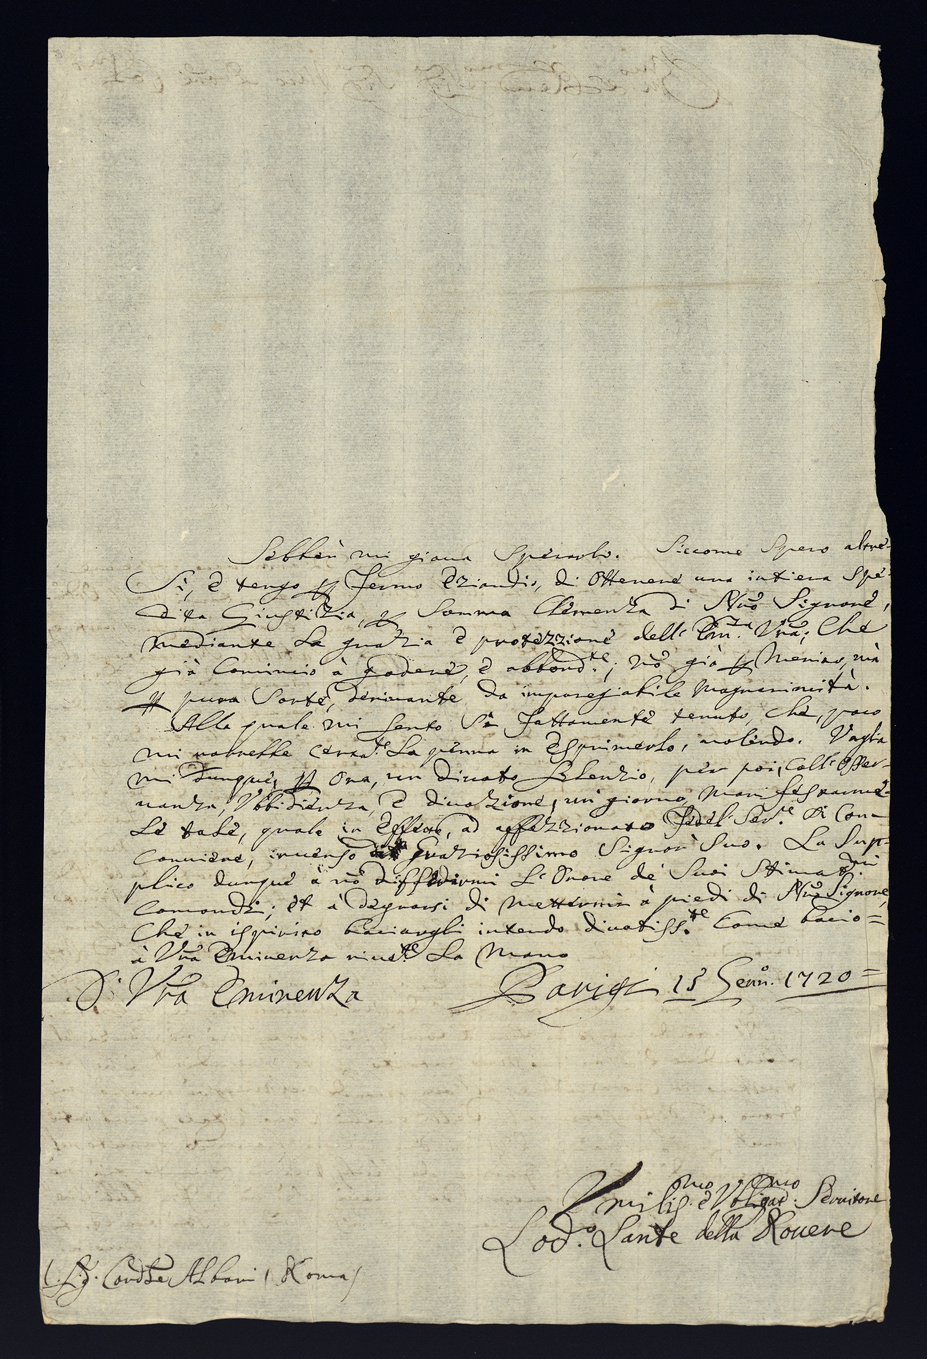 Sebben mi giova Sperarlo. Siccome Spero altre=
Sì, è tengo p fermo Eziandio, di Ottenere una intiera Spe=
dita Giustizia, p Somma Clemenza di Nrõ Signore,
mediante La grazia è protezzione dell' Em.za Vrã; Che
già Cominciò à godere, è abbond.te; nõ già p Merito, mà
p pura Sorte, derivante da impareggiabile Magnanimità.
Alla quale mi Sento Sì fattamente tenuto, che, poco
mi varrebbe certam.te La penna in Esprimerlo, volendo. Vaglia
mi dunque, p Ora, un divoto Silenzio, per poi, Coll' Osser=
vanza, Vbbidienza, è divozione, un giorno, Manifestarme=
Le tale, quale in Effetto, ad affezzionato Fedel Ser.re Si Con=
Conviene, inverso Graziosissimo Signor Suo. La Sup=
plico dunque à nõ diffedirmi L'Onore de Suoi Stimatis.mi
Comandi; et à degnarsi di mettermi à piedi di Nrõ Signore,
Che in ispirito baciargli intendo divotiss.te Come bacio=
à Vrã Eminenza rivte La Mano
Di Vrã Eminenza Parigi 15 Genn.o 1720=
Vmilis.mo è Vbligat.mo Servitore
Lod.o Lante della Rovere
S.r Cardle Albani (Roma)